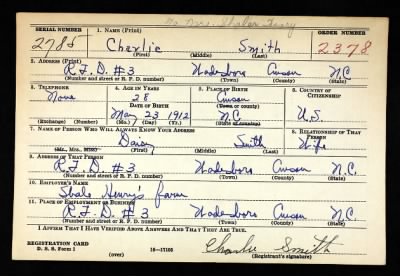 SERIAL NUMBER 1. NAME (Print) ORDER NUMBER
2785 Charlie Smith 2378
(First) (Middle) (Last)
2. ADDRESS (Print)
R.F.D. #3 Wadesboro Anson N.C.
(Number and street or R. F. D. number) (Town) (County) (State)
3. TELEPHONE 4. AGE IN YEARS 5. PLACE OF BIRTH 6. COUNTRY OF CITIZENSHIP
None 28 Anson
DATE OF BIRTH (Town or county)
May 23 1912 N.C. U.S.
(Exchange) (Number) (Mo.) (Day) (Yr.) (State or country)
7. NAME OF PERSON WHO WILL ALWAYS KNOW YOUR ADDRESS 8. RELATIONSHIP OF THAT PERSON
Daisy Smith Wife
(Mr., Mrs., Miss) (First) (Middle) (Last)
9. ADDRESS OF THAT PERSON
R.F.D. #3 Wadesboro Anson N.C.
(Number and street or R. F. D. number) (Town) (County) (State)
10. EMPLOYER'S NAME
Henry's farm
11. PLACE OF EMPLOYMENT OR BUSINESS
R.F.D. #3 Wadesboro Anson N.C.
(Number and street or R. F. D. number) (Town) (County) (State)
I AFFIRM THAT I HAVE VERIFIED ABOVE ANSWERS AND THAT THEY ARE TRUE.
REGISTRATION CARD
D. S. S. Form 1 16—17105 Charlie Smith
(over) (Registrant's signature)